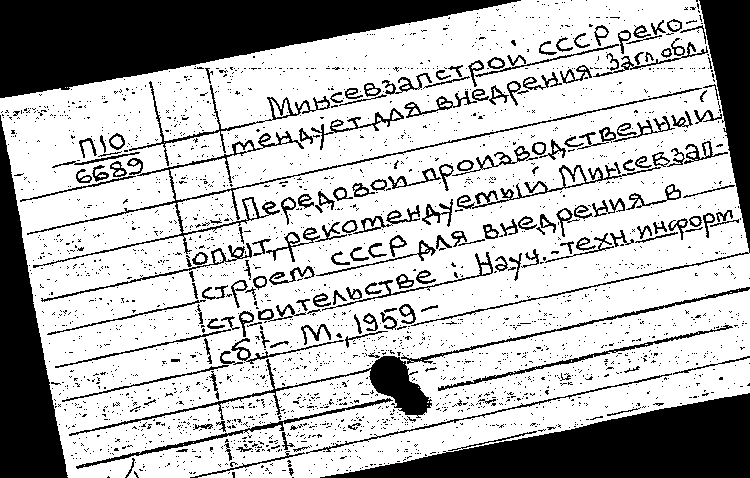 Минсевзапстрой СССР реко-
мендует для внедрения. Загл. обл.
П10
6689
Передовой производственный
опыт, рекомендуемый Минсевзап-
строем СССР для внедрения в
строительстве : Науч.-техн. информ.
сб. – М., 1959 –